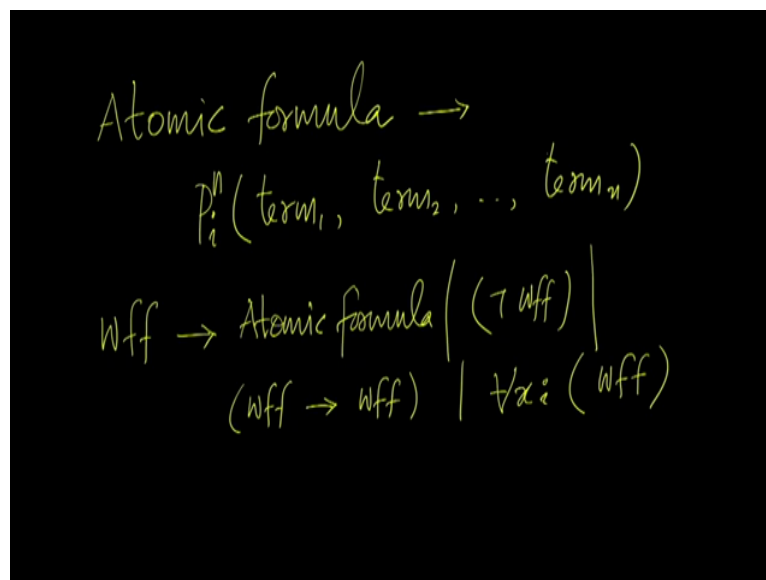 Atomic formula →
Pᵢⁿ(term₁, term₂, .., termₙ)
Wff → Atomic formula | (¬ Wff) |
(Wff → Wff) | ∀xᵢ (Wff)